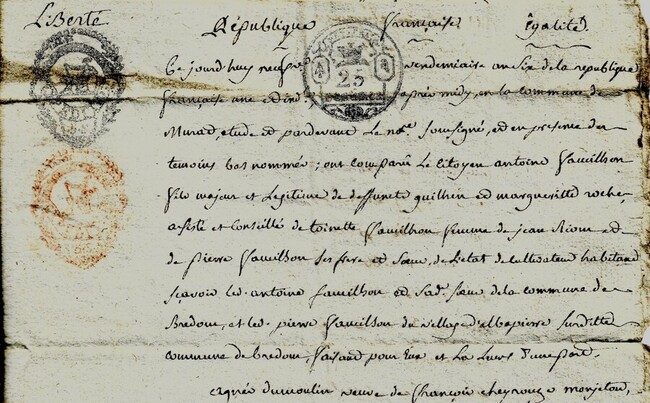 Liberté République française égalité
25
Ce jourd'huy neuf vendemiaire an six de la republique
française une et ind. après midy, en la commune de
Murat, etude et pardevant le not.re soussigné, et en presence des
temoins bas nommés; ont comparû le citoyen antoine vauilhon
fils majeur et legitime de deffunts guilhen et margueritte roche
assisté et conseillé de toinette vauilhon veuve de jean et
de pierre vauilhon ses frere et sœur, de l'etat de cultivateur habitand
scavoir led. antoine vauilhon et sad. sœur de la commune de
Bredom, et led. pierre vauilhon du village d'albepierre surditte
commune de bredom, faisand pour eux et les leurs d'une part.
agnés dumoulin veuve de françois cheyrouze monjetou,